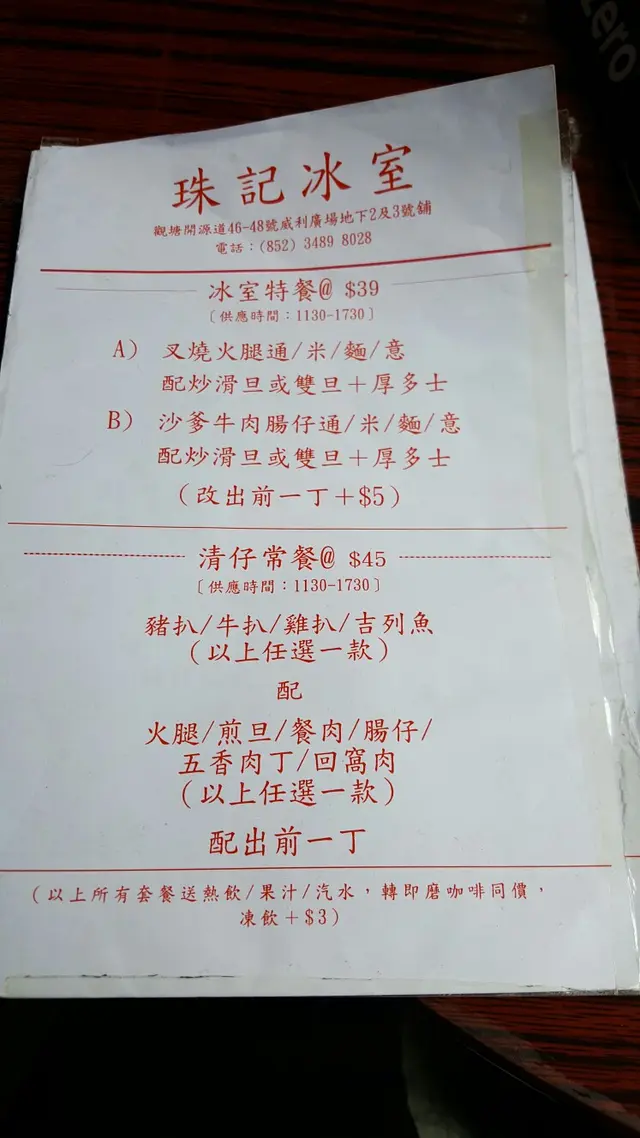 zero
珠記冰室
觀塘開源道46-48號威利廣場地下2及3號舖
電話：(852) 3489 8028
冰室特餐@ $39
〔供應時間：1130-1730〕
A) 叉燒火腿通/米/麵/意
配炒滑旦或雙旦＋厚多士
B) 沙爹牛肉腸仔通/米/麵/意
配炒滑旦或雙旦＋厚多士
（改出前一丁＋$5）
清仔常餐@ $45
〔供應時間：1130-1730〕
豬扒/牛扒/雞扒/吉列魚
（以上任選一款）
配
火腿/煎旦/餐肉/腸仔/
五香肉丁/回窩肉
（以上任選一款）
配出前一丁
（以上所有套餐送熱飲/果汁/汽水，轉即磨咖啡同價，
凍飲＋$3）